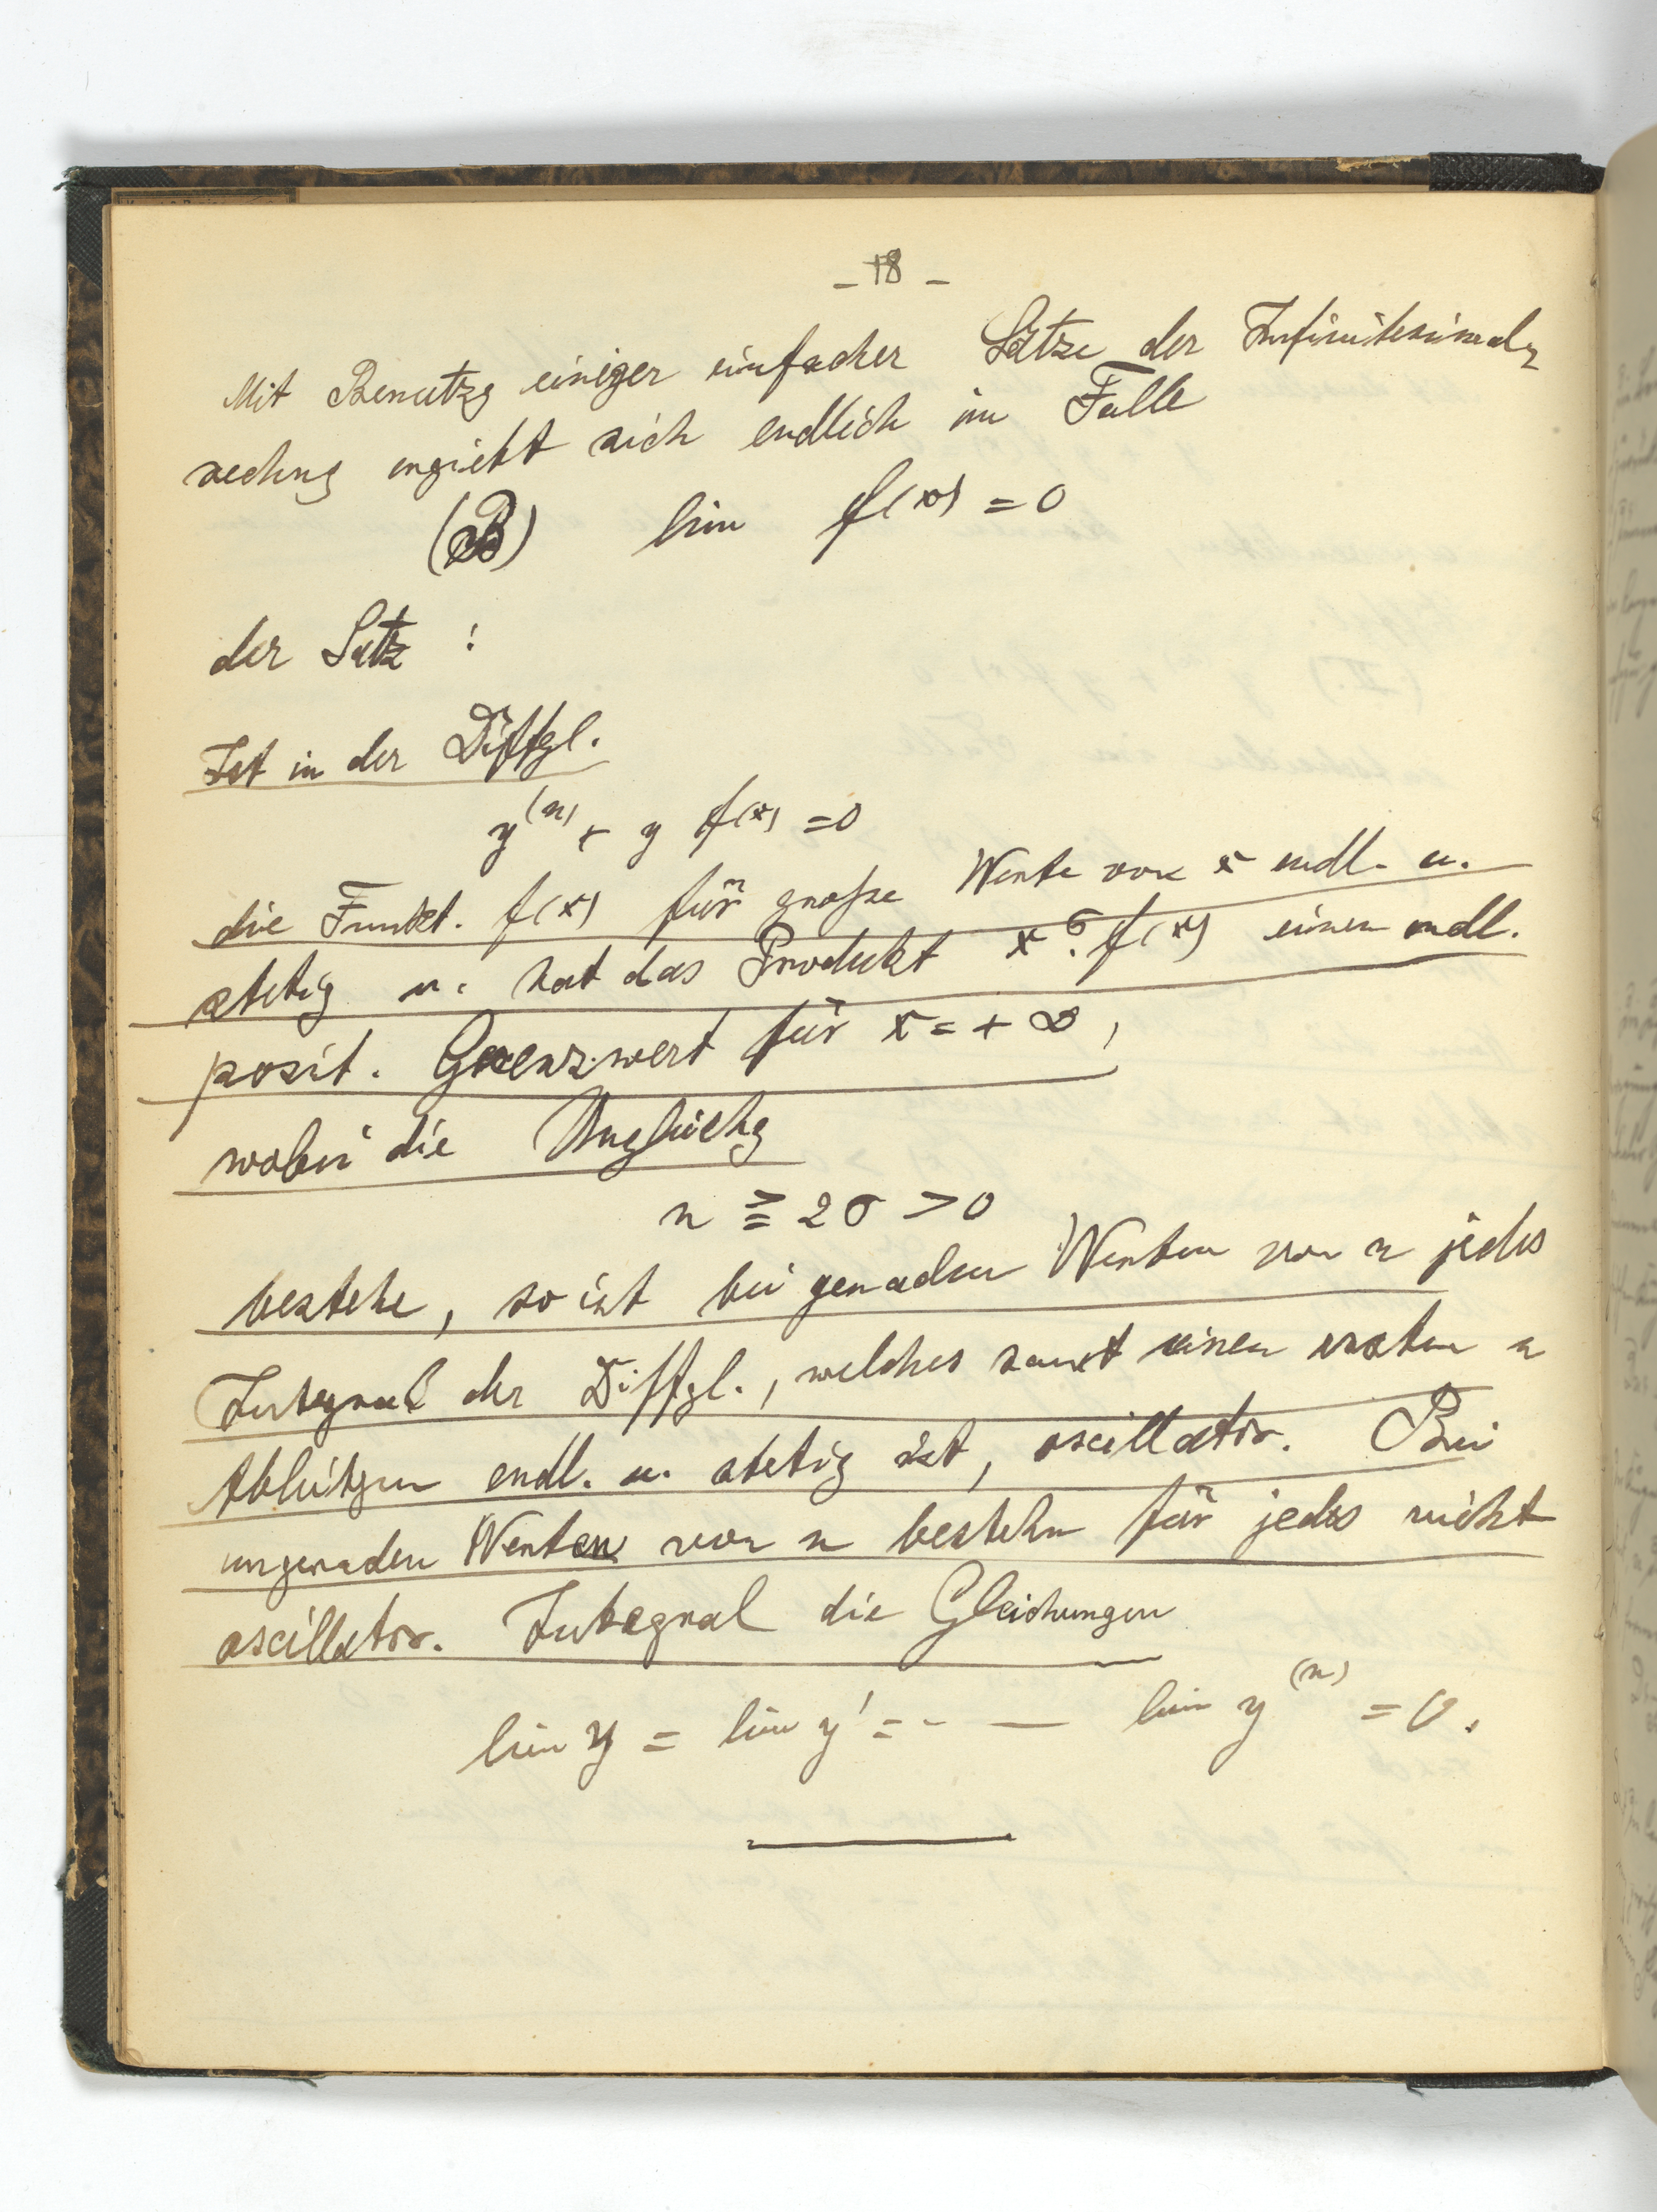 - 18 -
Mit Benutzg einiger einfacher Sätze der Infinitesimal-
rechng ergiebt sich endlich im Falle
(B) lim f(x) = 0
der Satz :
Ist in der Diffgl.
y^(n) + y f(x) = 0
die Funkt. f(x) für große Werte von x endl. u.
stetig u. hat das Produkt x^σ. f(x) einen endl.
posit. Grenzwert für x = + ∞ ,
wobei die Ungleichg
n ≧ 2σ > 0
bestehe, so ist bei geraden Werten von n jedes
Integral der Diffgl., welches samt seinen ersten n
Ableitgen endl. u. stetig ist, oscillator. Bei
ungeraden Werten von n bestehn für jedes nicht
oscillator. Integral die Gleichungen
lim y = lim y' = - — lim y^(n) = 0.